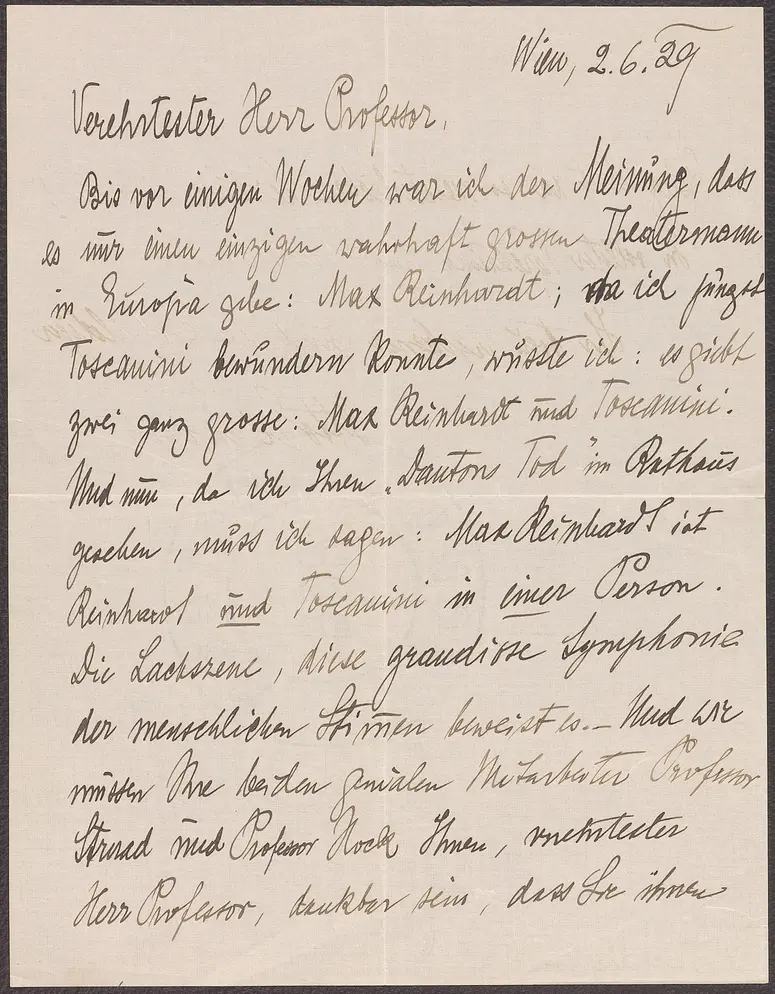 Wien, 2.6.29
Verehrtester Herr Professor,
Bis vor einigen Wochen war ich der Meinung, dass
es nur einen einzigen wahrhaft grossen Theatermann
in Europa gebe: Max Reinhardt; da ich jüngst
Toscanini bewundern konnte, wusste ich: es giebt
zwei ganz grosse: Max Reinhardt und Toscanini.
Und nun, da ich Ihren „Dantons Tod" im Rathaus
gesehen, muss ich sagen: Max Reinhardt ist
Reinhardt und Toscanini in einer Person.
Die Lachszene, diese grandiose Symphonie
der menschlichen Stimmen beweist es. – Und wie
müssen Ihre beiden genialen Mitarbeiter Professor
Strnad und Professor Nock Ihnen, verehrtester
Herr Professor, dankbar sein, dass Sie ihnen